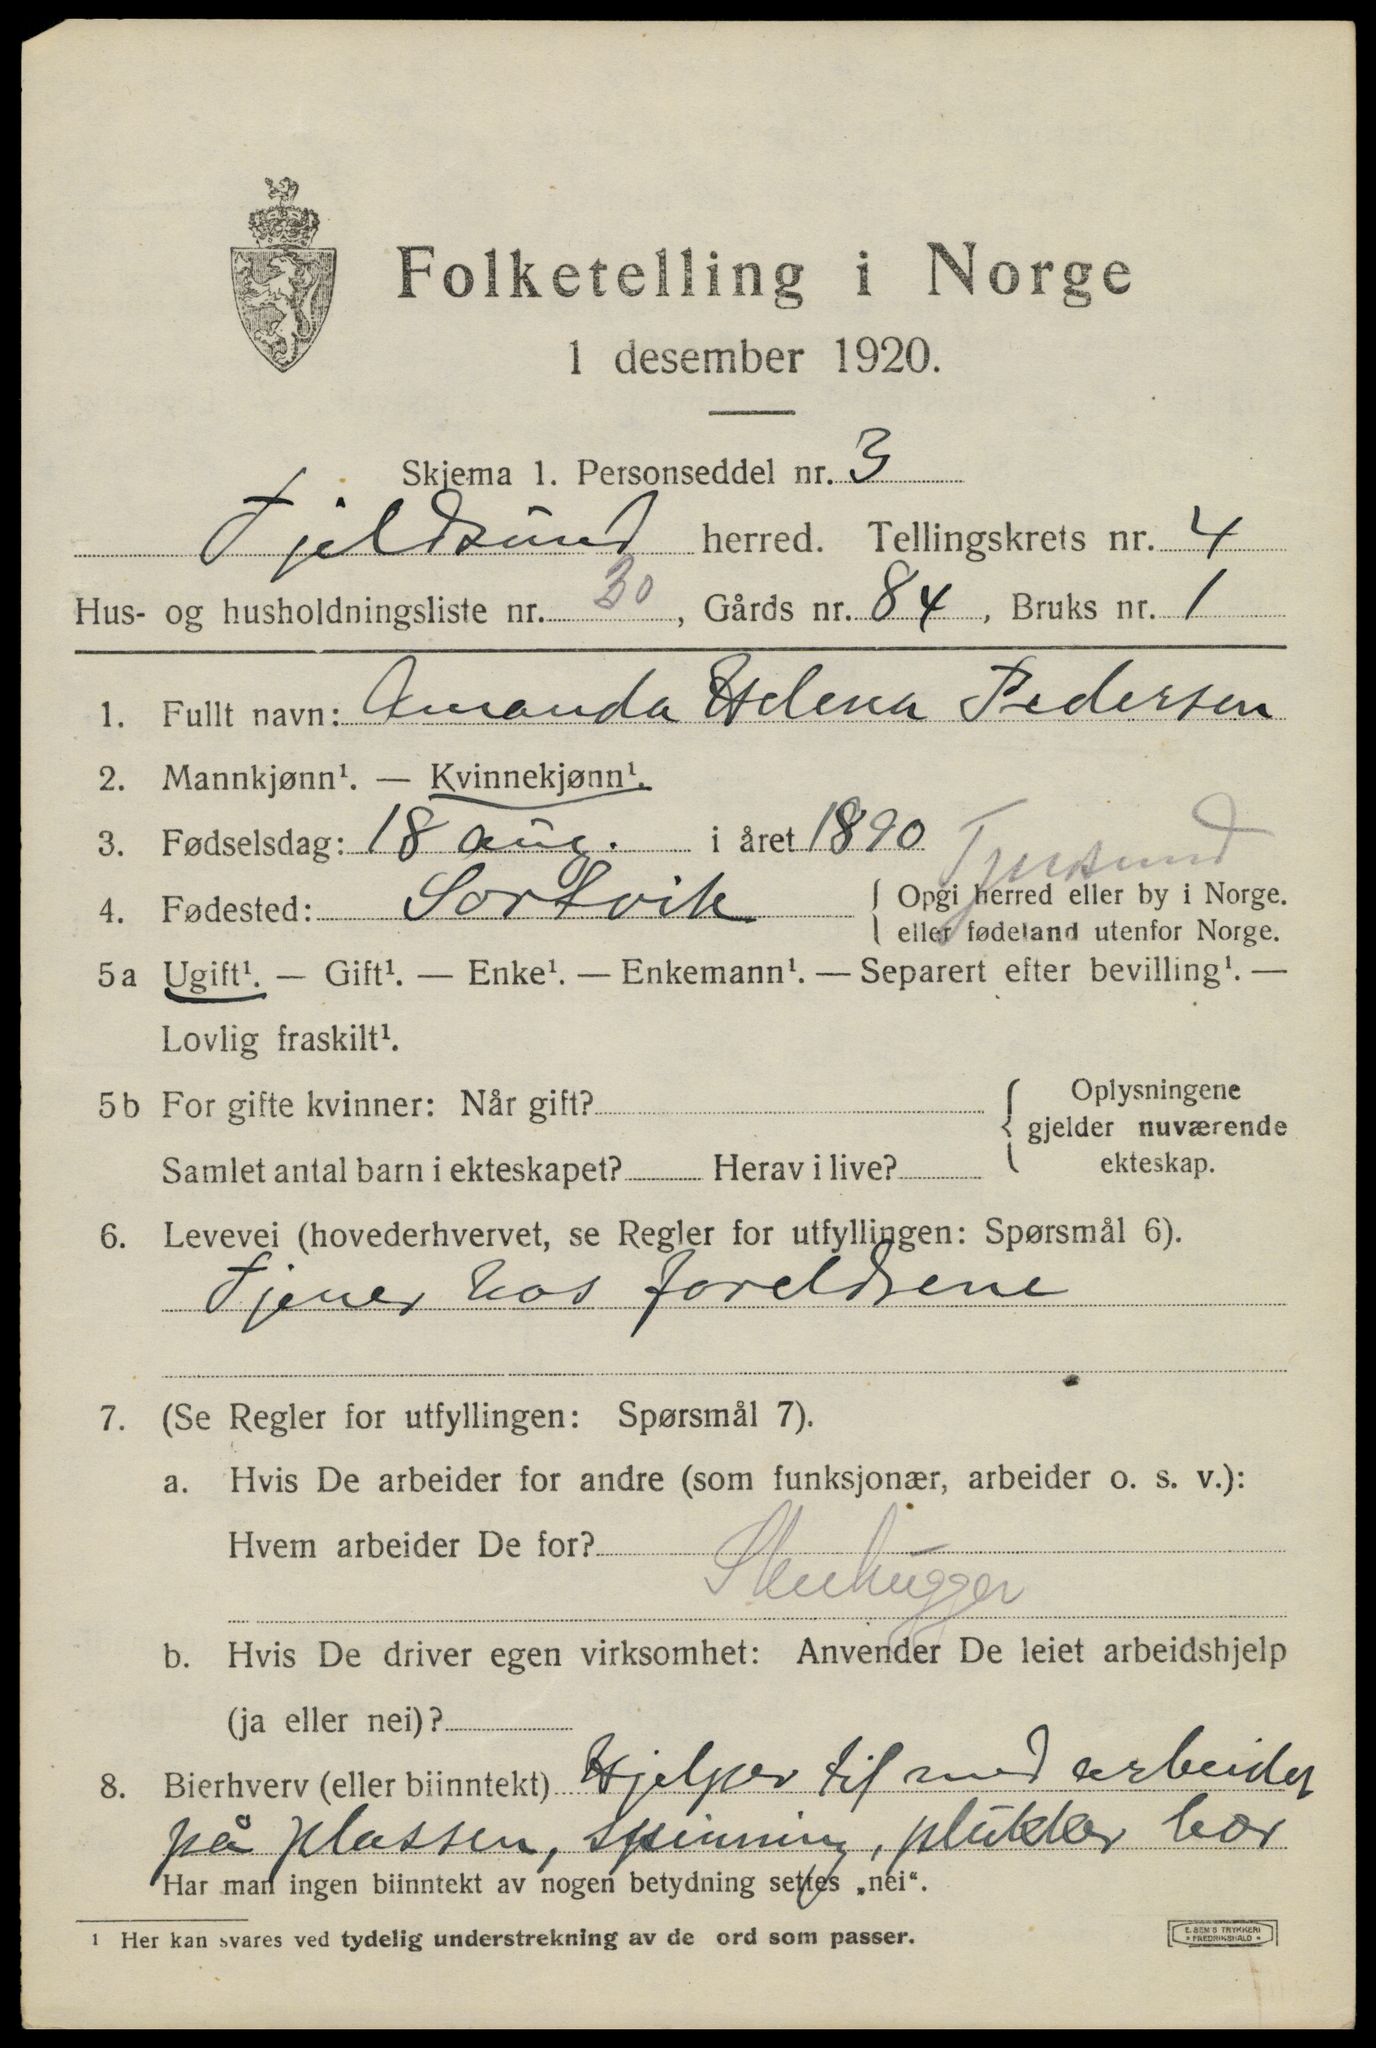 Folketelling i Norge
1 desember 1920.
Skjema 1. Personseddel nr. 3
Fjeldsund herred. Tellingskrets nr. 4
Hus- og husholdningsliste nr. 30, Gårds nr. 84, Bruks nr. 1
1. Fullt navn: Amanda Helena Pedersen
2. Mannkjønn¹. — Kvinnekjønn¹.
3. Fødselsdag: 18 aug. i året 1890
4. Fødested: Sortvik { Opgi herred eller by i Norge.
eller fødeland utenfor Norge.
Tjeldsund
5a Ugift¹. — Gift¹. — Enke¹. — Enkemann¹. — Separert efter bevilling¹. —
Lovlig fraskilt¹.
5b For gifte kvinner: Når gift?
Samlet antal barn i ekteskapet? Herav i live?
Oplysningene
gjelder nuværende
ekteskap.
6. Levevei (hovederhvervet, se Regler for utfyllingen: Spørsmål 6).
Tjener hos foreldrene
7. (Se Regler for utfyllingen: Spørsmål 7).
a. Hvis De arbeider for andre (som funksjonær, arbeider o. s. v.):
Hvem arbeider De for?
Stenhugger
b. Hvis De driver egen virksomhet: Anvender De leiet arbeidshjelp
(ja eller nei)?
8. Bierhverv (eller biinntekt) Hjelper til med arbeidet
på plassen, spinning, plukker bær
Har man ingen biinntekt av nogen betydning settes „nei“.
1 Her kan svares ved tydelig understrekning av de ord som passer.
E. SEM'S TRYKKERI
* FREDRIKSHALD *